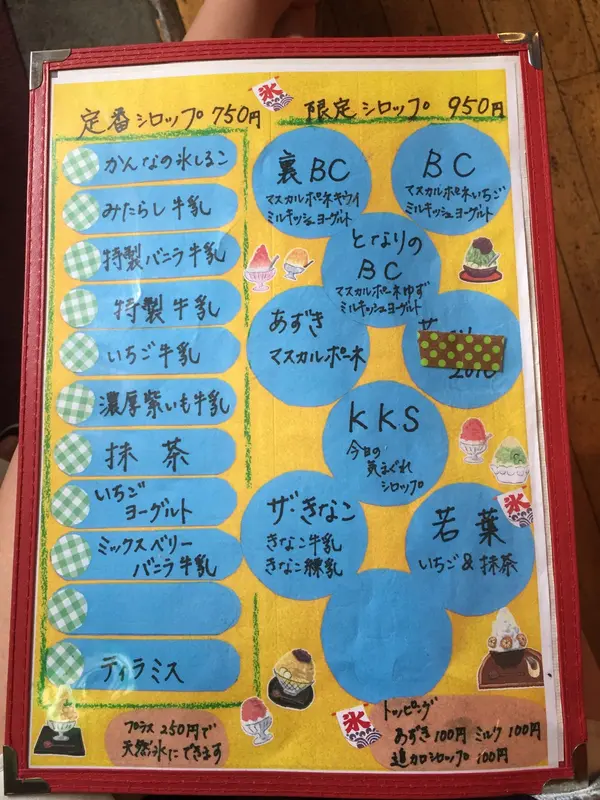 定番シロップ 750円
かんなの氷しるこ
みたらし牛乳
特製バニラ牛乳
特製牛乳
いちご牛乳
濃厚紫いも牛乳
抹茶
いちご
ヨーグルト
ミックスベリー
バニラ牛乳
ティラミス
プラス250円で
天然氷にできます
氷
限定シロップ 950円
裏BC
マスカルポーネキウイ
ミルキッシュヨーグルト
BC
マスカルポーネいちご
ミルキッシュヨーグルト
となりの
BC
マスカルポーネゆず
ミルキッシュヨーグルト
あずき
マスカルポーネ
KKS
今日の
気まぐれ
シロップ
ザ・きなこ
きなこ牛乳
きなこ練乳
若葉
いちご&抹茶
氷
氷
トッピング
あずき100円 ミルク100円
追加シロップ 100円